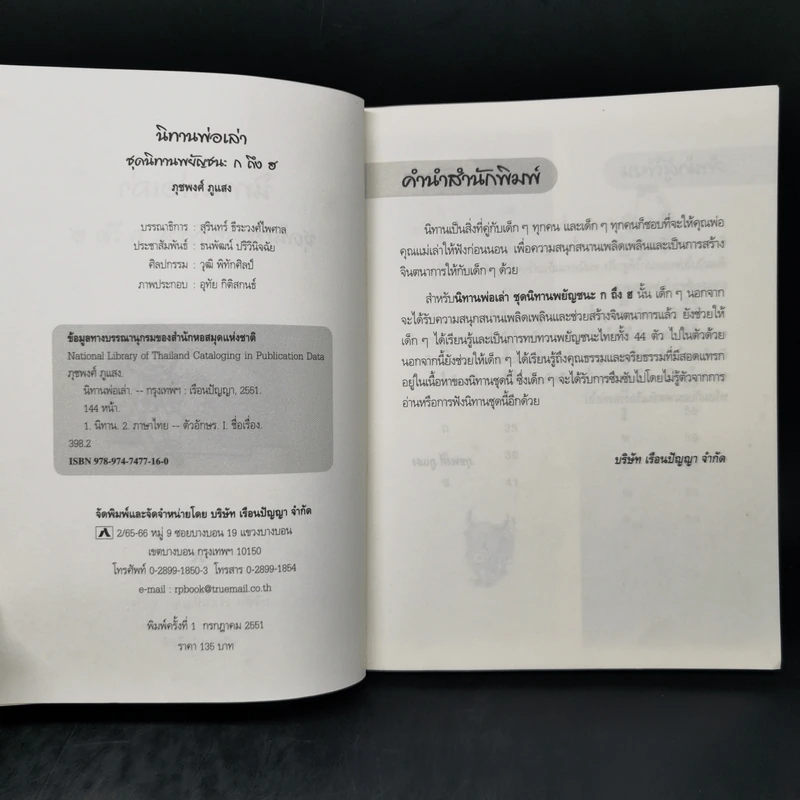 นิทานพ่อเล่า
ชุดนิทานพยัญชนะ ก ถึง ฮ
ภุชพงศ์ ภูแสง
บรรณาธิการ : สุรินทร์ ธีระวงศ์ไพศาล
ประชาสัมพันธ์ : ธนพัฒน์ ปริวินิจฉัย
ศิลปกรรม : วุฒิ พิทักศิลป์
ภาพประกอบ : อุทัย กิติสกนธ์
ข้อมูลทางบรรณานุกรมของสำนักหอสมุดแห่งชาติ
National Library of Thailand Cataloging in Publication Data
ภุชพงศ์ ภูแสง.
นิทานพ่อเล่า. -- กรุงเทพฯ : เรือนปัญญา, 2551.
144 หน้า.
1. นิทาน. 2. ภาษาไทย -- ตัวอักษร. I. ชื่อเรื่อง.
398.2
ISBN 978-974-7477-16-0
จัดพิมพ์และจัดจำหน่ายโดย บริษัท เรือนปัญญา จำกัด
2/65-66 หมู่ 9 ซอยบางบอน 19 แขวงบางบอน
เขตบางบอน กรุงเทพฯ 10150
โทรศัพท์ 0-2899-1850-3 โทรสาร 0-2899-1854
e-mail : rpbook@truemail.co.th
พิมพ์ครั้งที่ 1 กรกฎาคม 2551
ราคา 135 บาท
คำนำสำนักพิมพ์
นิทานเป็นสิ่งที่คู่กับเด็ก ๆ ทุกคน และเด็ก ๆ ทุกคนก็ชอบที่จะให้คุณพ่อ
คุณแม่เล่าให้ฟังก่อนนอน เพื่อความสนุกสนานเพลิดเพลินและเป็นการสร้าง
จินตนาการให้กับเด็ก ๆ ด้วย
สำหรับนิทานพ่อเล่า ชุดนิทานพยัญชนะ ก ถึง ฮ นั้น เด็ก ๆ นอกจาก
จะได้รับความสนุกสนานเพลิดเพลินและช่วยสร้างจินตนาการแล้ว ยังช่วยให้
เด็ก ๆ ได้เรียนรู้และเป็นการทบทวนพยัญชนะไทยทั้ง 44 ตัว ไปในตัวด้วย
นอกจากนี้ยังช่วยให้เด็ก ๆ ได้เรียนรู้ถึงคุณธรรมและจริยธรรมที่มีสอดแทรก
อยู่ในเนื้อหาของนิทานชุดนี้ ซึ่งเด็ก ๆ จะได้รับการซึมซับไปโดยไม่รู้ตัวจากการ
อ่านหรือการฟังนิทานชุดนี้อีกด้วย
บริษัท เรือนปัญญา จำกัด